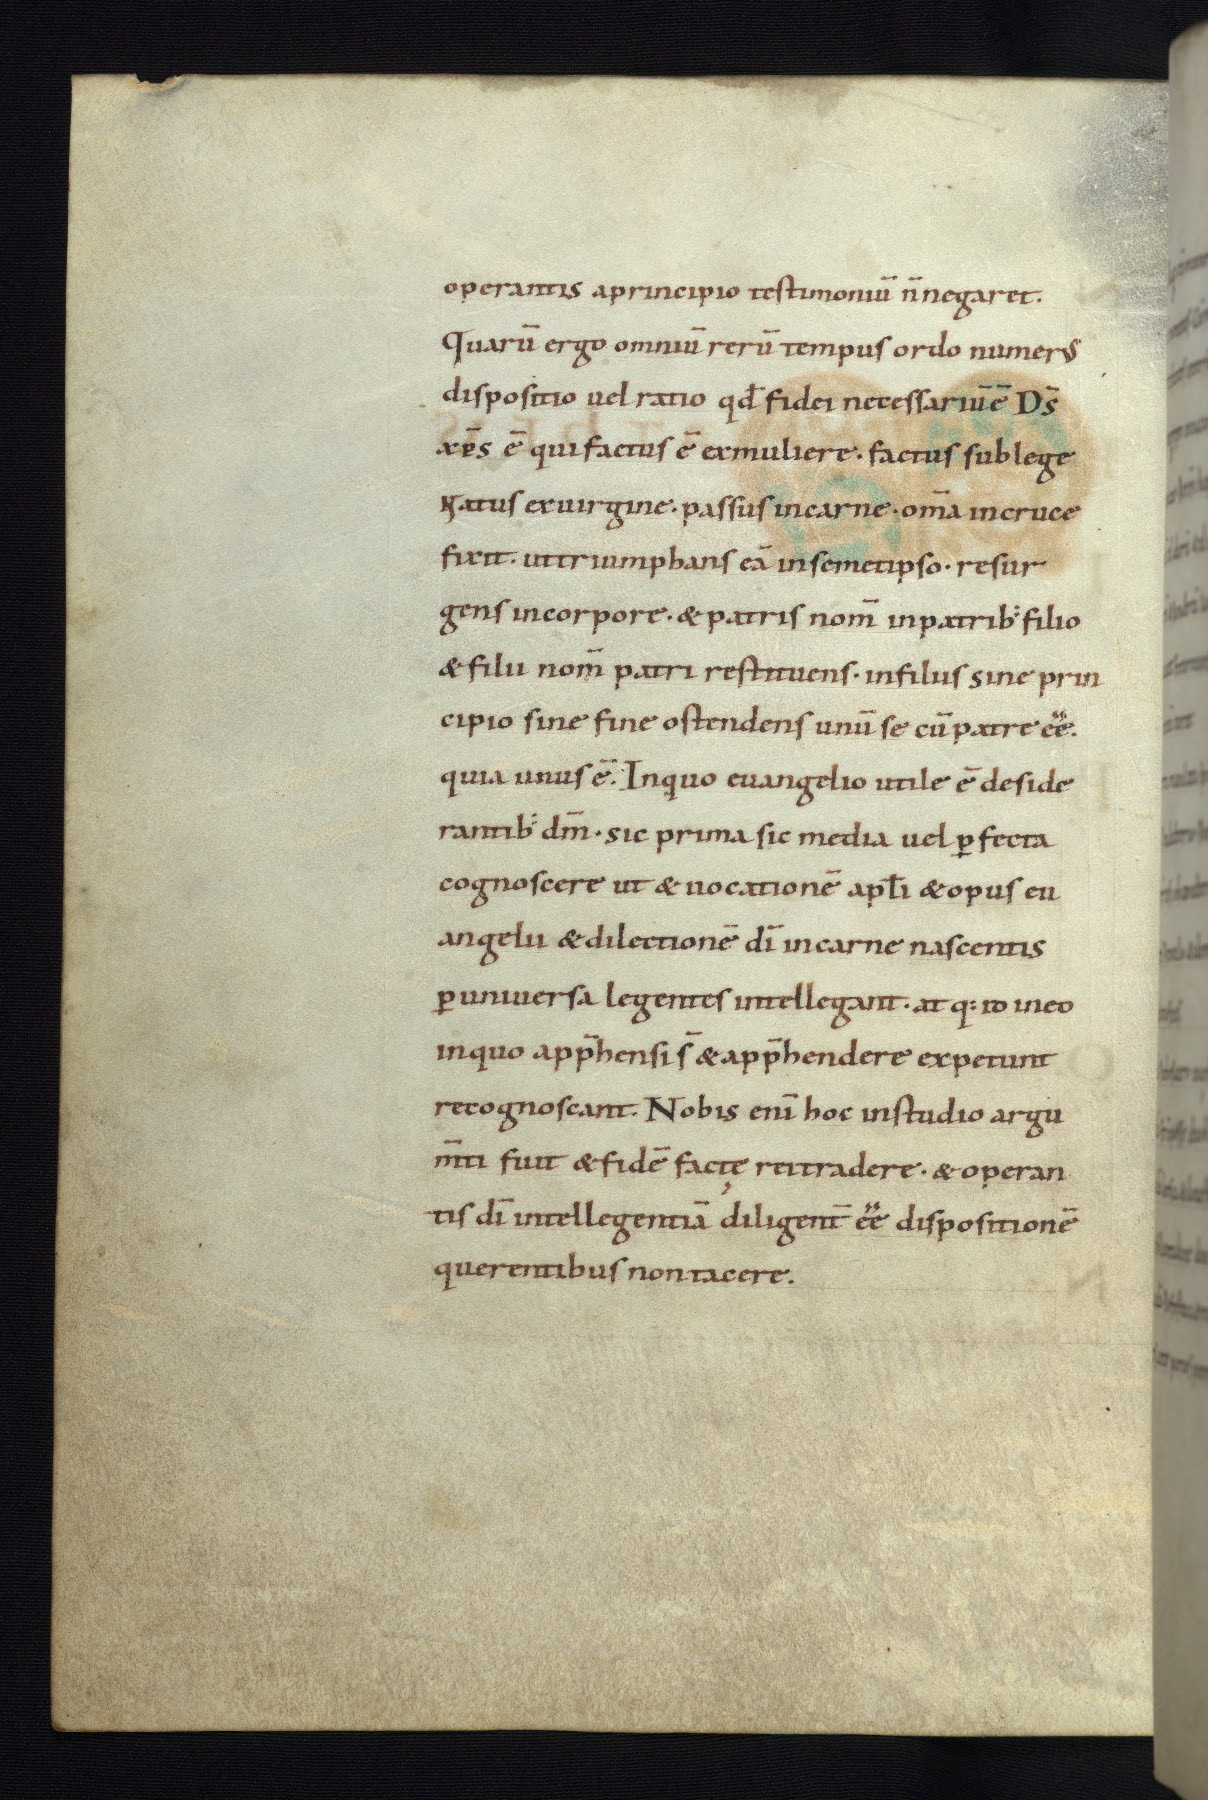 operantis aprincipio testimoniū n̄negaret.
Quarū ergo omniū rerū tempus ordo numerus
dispositio uel ratio qd̄ fidei necessariūē Ds̄
xp̄s ē quifactus ē exmuliere· factus sublege
Natus exuirgine· passus incarne· om̄a incruce
fixit· uttriumphans eā insemetipso· resur
gens incorpore· & patris nom̄ inpatrib; filio
& filii nom̄ patri restituens· infilius sine prin
cipio sine fine ostendens unū se cū patre ee̅.
quia unus ē. Inquo euangelio utile ē deside
rantib; dm̄· sic prima sic media uel ꝑfecta
cognoscere ut & uocationē apl̄i & opus eu
angelii & dilectionē dī incarne nascentis
ꝑuniuersa legentes intellegant· at q: id ineo
inquo app̄hensi s̄ & app̄hendere expetunt
recognoscant. Nobis enī hoc instudio argu
m̄ti fuit & fidē factę reitradere· & operan
tis dī intellegentiā diligent̄ ee̅ dispositionē
querentibus nontacere.